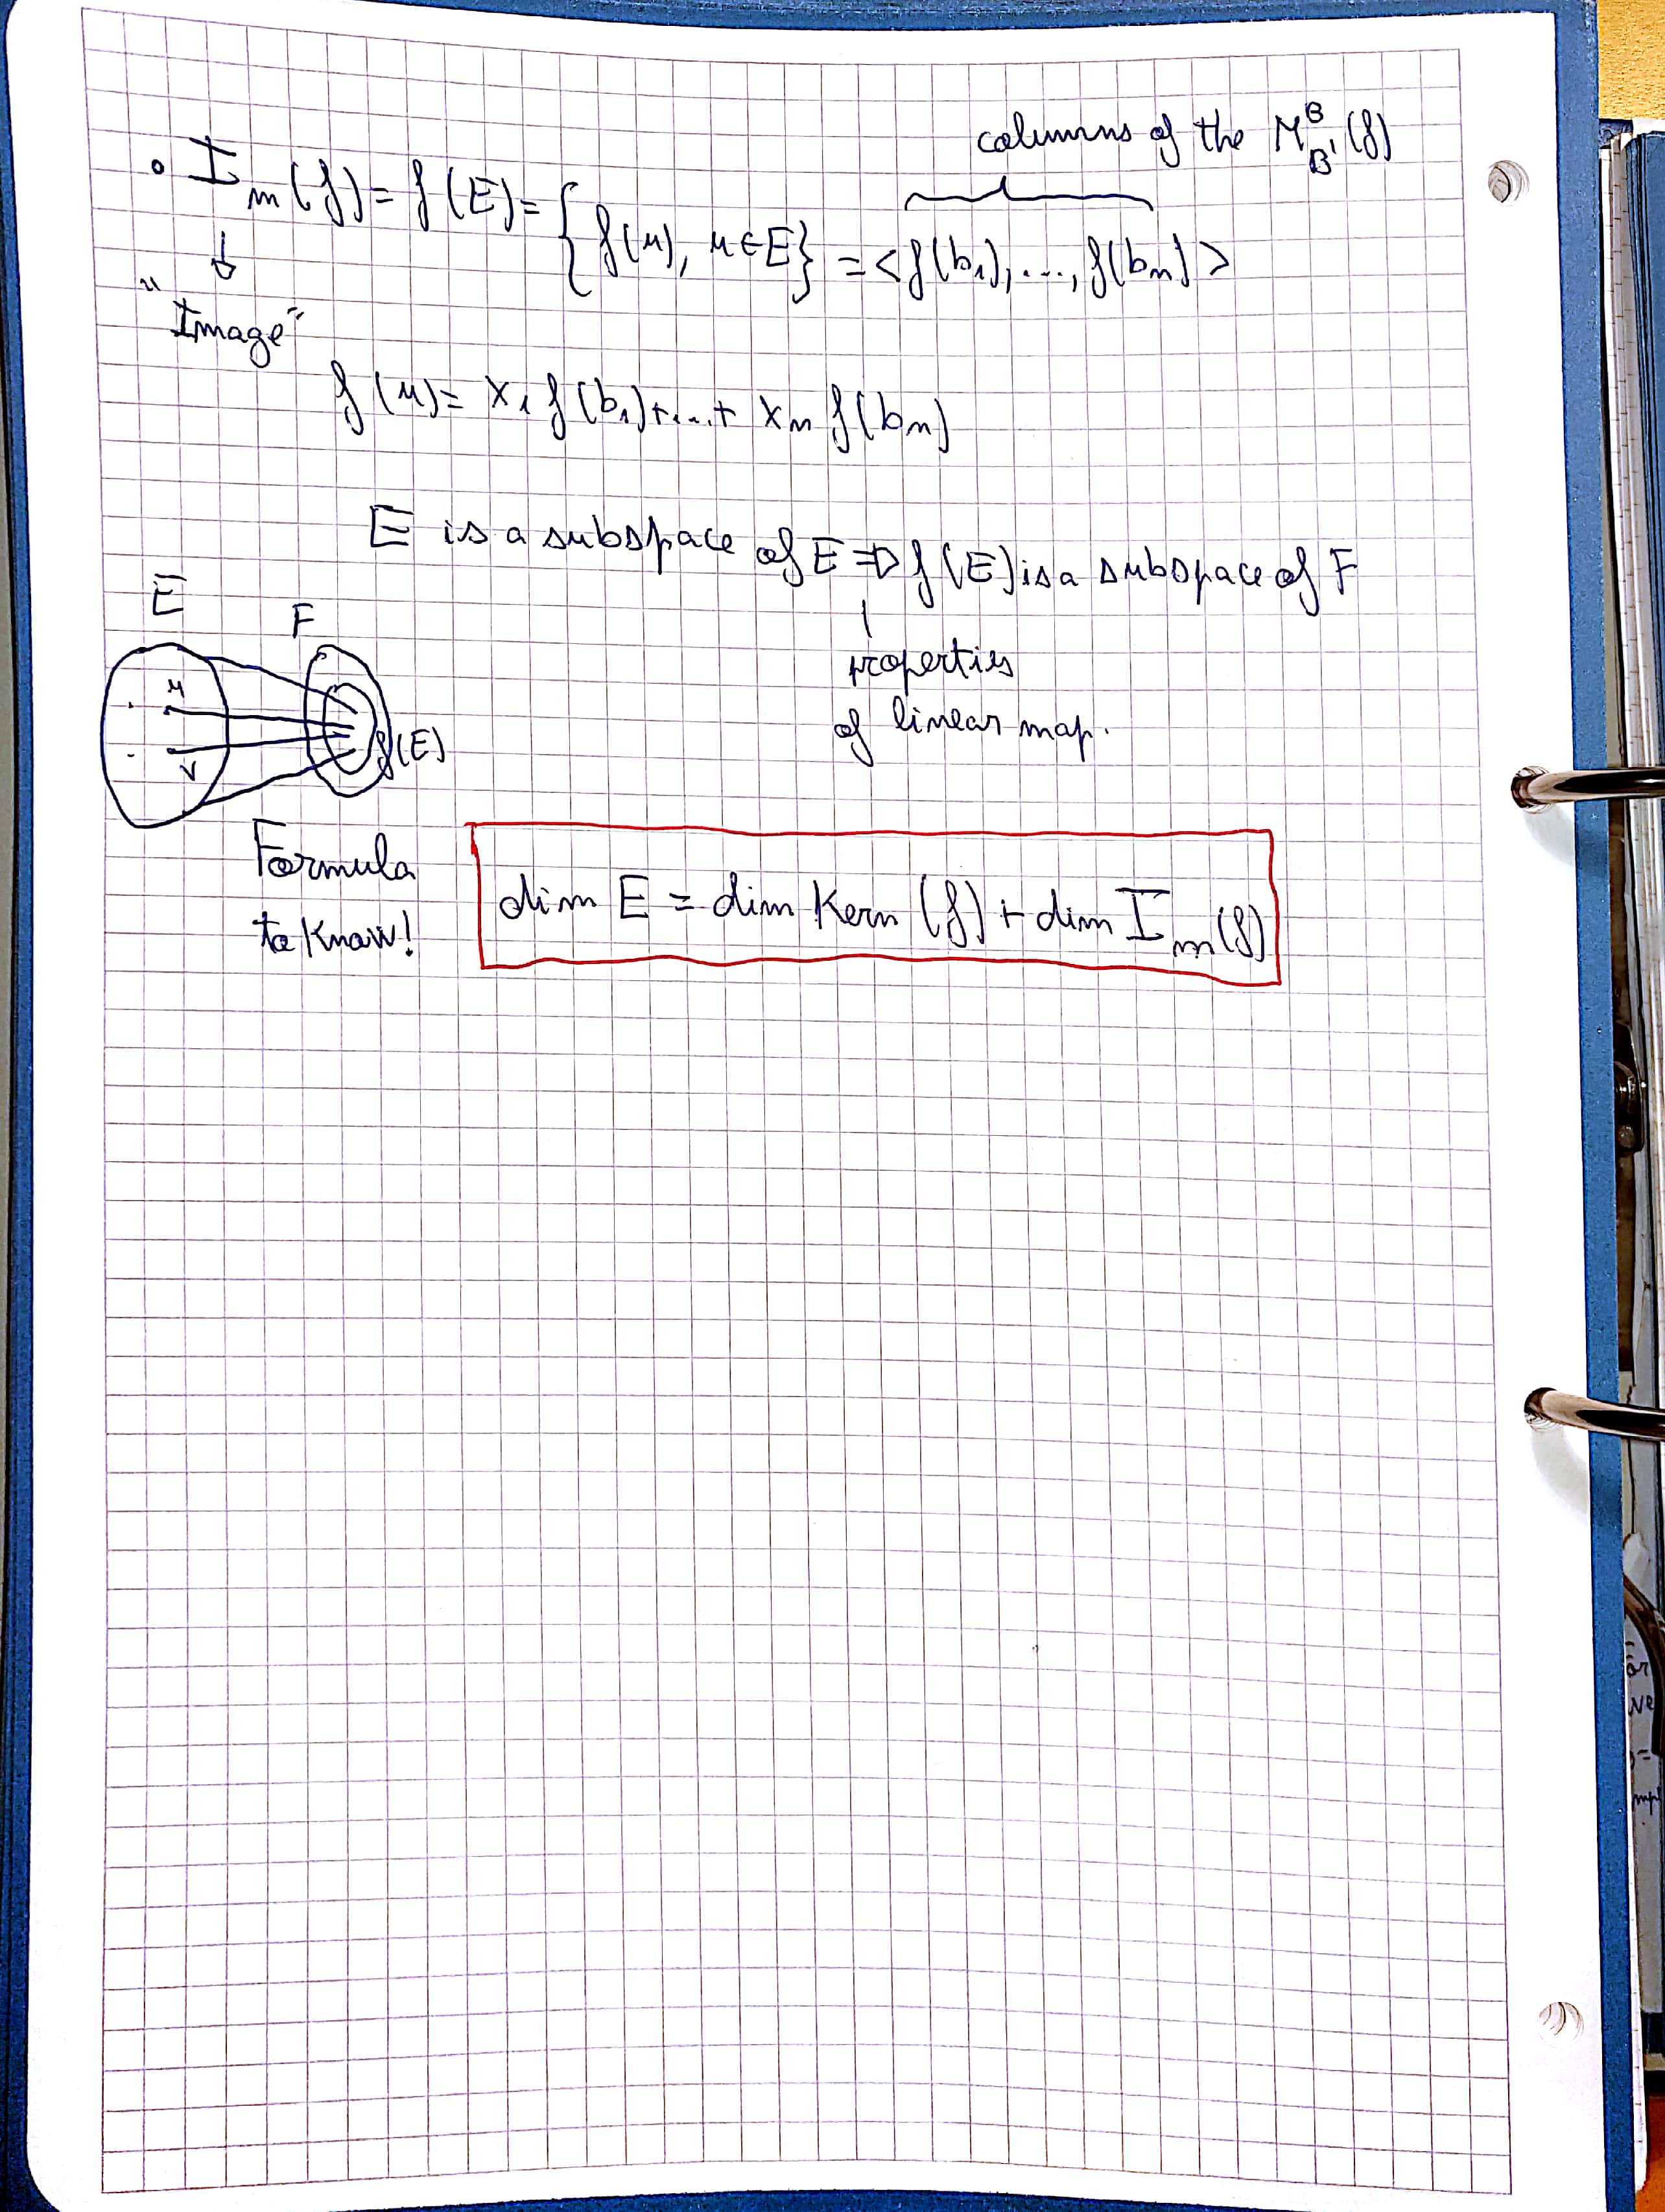 columns of the M^B_B'(f)
• Im(f) = f(E) = {f(u), u∈E} = <f(b₁), ..., f(bn)>
↓
"Image"
f(u) = x₁ f(b₁) + ... + xn f(bn)
E is a subspace of E ⇒ f(E) is a subspace of F
properties
of linear map.
E
F
u
v
f(E)
Formula
to know!
dim E = dim Kern(f) + dim Im(f)